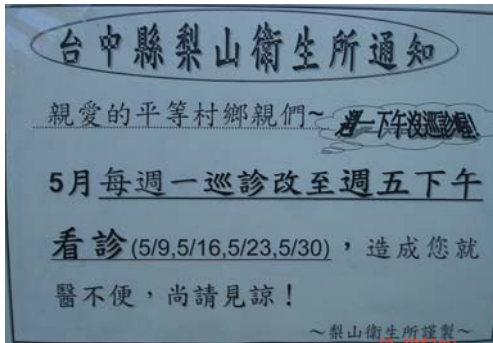 台中縣梨山衛生所通知
親愛的平等村鄉親們~
週一下午沒巡診喔!
5月每週一巡診改至週五下午
看診(5/9,5/16,5/23,5/30),造成您就
醫不便,尚請見諒!
~梨山衛生所謹製~